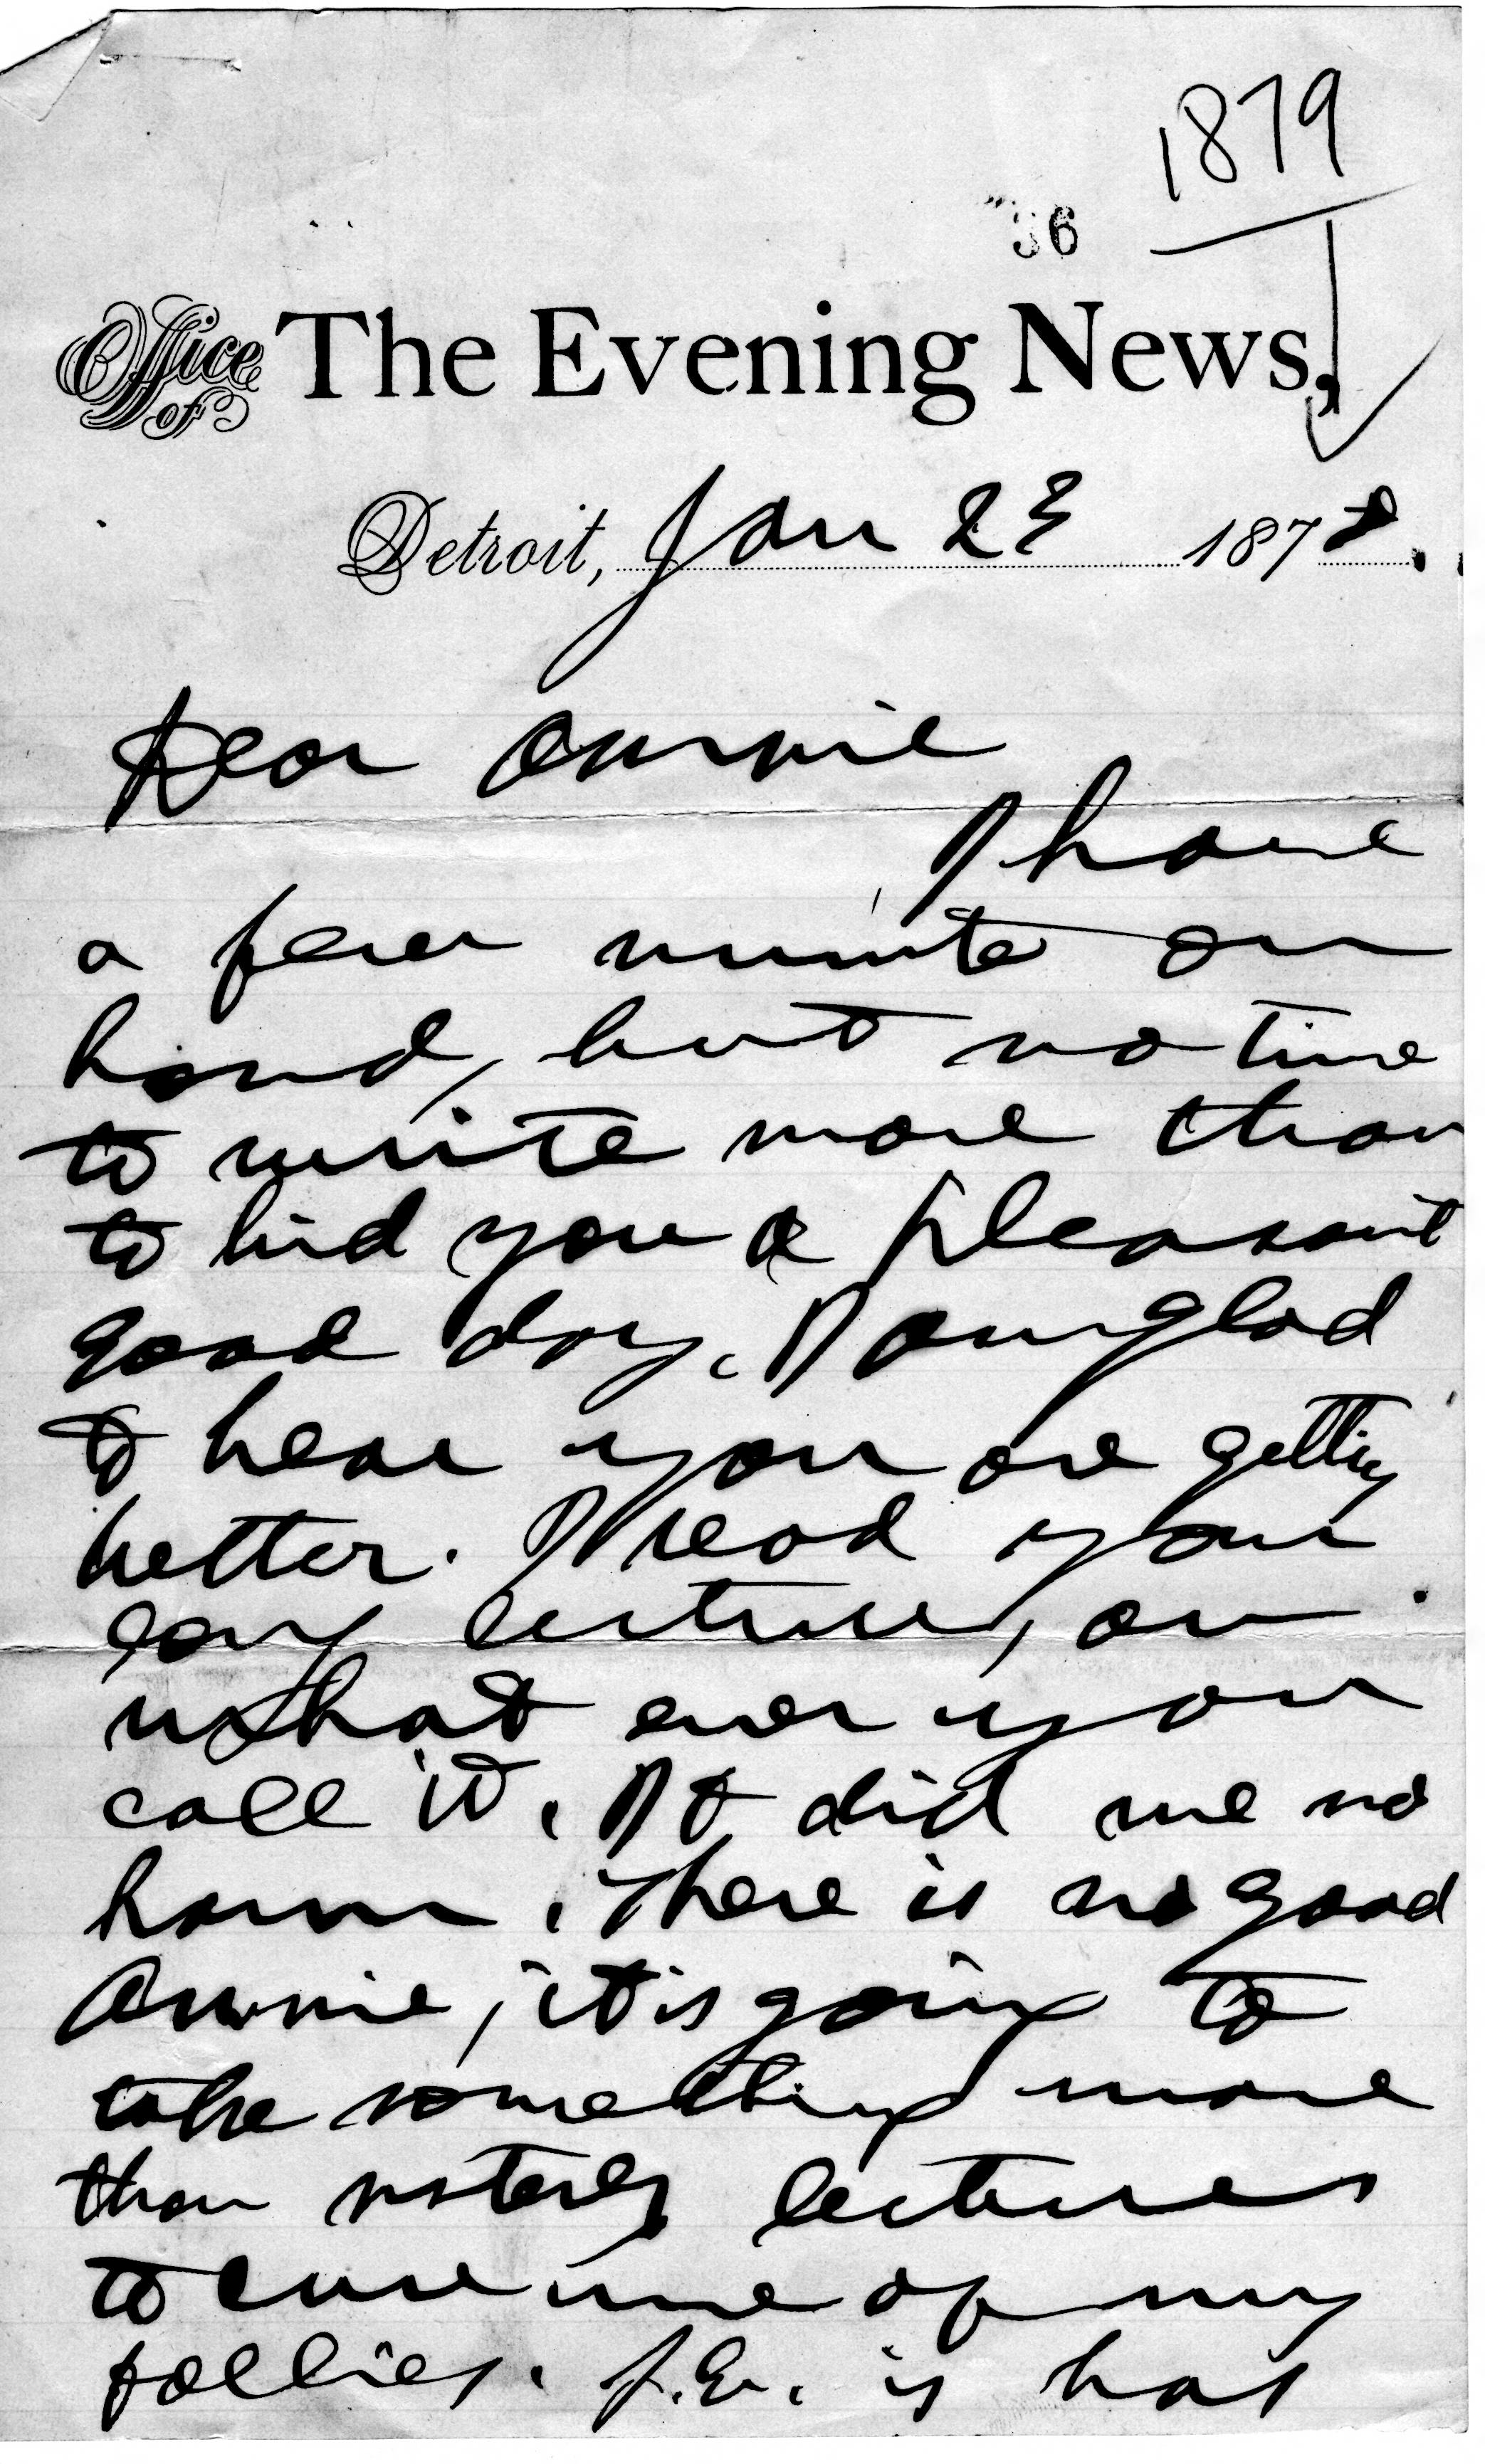 1879
36
Office of The Evening News,
Detroit, Jan 23 1878.
Dear Annie
I have
a few minute on
hand, but no time
to write more than
to bid you a pleasant
good day. I am glad
to hear you are getting
better. I read your
long lecture, or
what ever you
call it. It did me no
harm. There is no good
Annie, it is going to
take something more
than sisterly lectures
to cure me of my
follies. J.E. is has